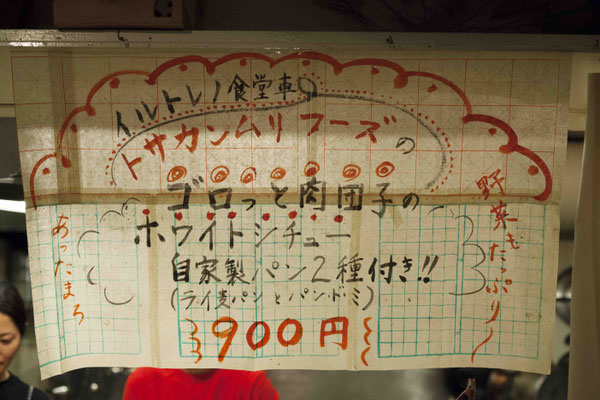 イルトレノ食堂車
トサカンムリフーズの
ゴロっと肉団子の
ホワイトシチュー
自家製パン2種付き!!
(ライ麦パンとパンドミ)
900円
野菜もたっぷり〜
あったまろ